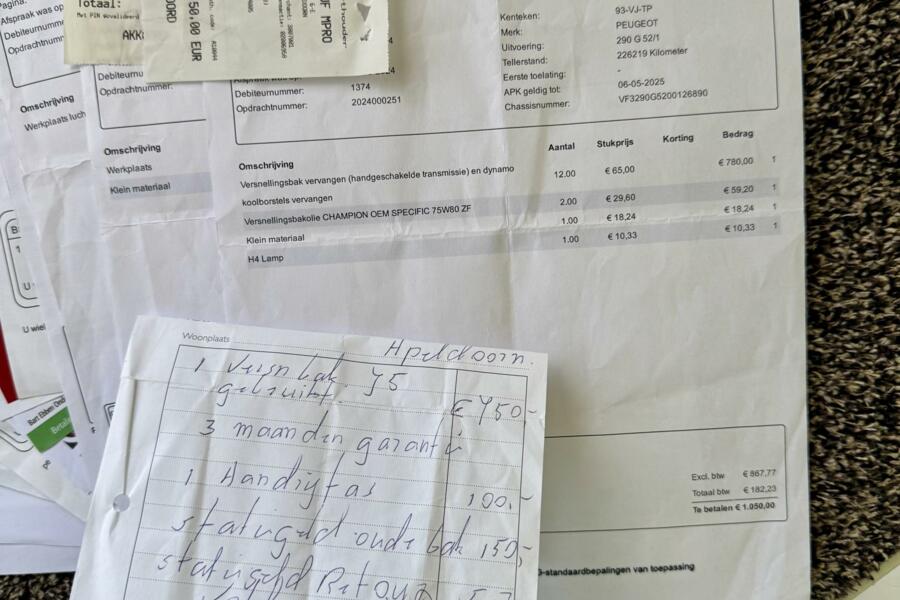 Pagina:
Afspraak was op
Debiteurnumme
Opdrachtnumm
Omschrijving
Werkplaats luch
Totaal:
AKK
50,00 EUR
MPRO
Debiteurnu
Opdrachtnummer:
Omschrijving
Werkplaats
Klein materiaal
Debiteurnummer: 1374
Opdrachtnummer: 2024000251
Kenteken: 93-VJ-TP
Merk: PEUGEOT
Uitvoering: 290 G 52/1
Tellerstand: 226219 Kilometer
Eerste toelating: -
APK geldig tot: 06-05-2025
Chassisnummer: VF3290G5200126890
Omschrijving Aantal Stukprijs Korting Bedrag
Versnellingsbak vervangen (handgeschakelde transmissie) en dynamo 12.00 € 65,00 € 780,00 1
koolborstels vervangen
Versnellingsbakolie CHAMPION OEM SPECIFIC 75W80 ZF 2.00 € 29,60 € 59,20 1
Klein materiaal 1.00 € 18,24 € 18,24 1
H4 Lamp 1.00 € 10,33 € 10,33 1
U wiel
Excl. btw € 867,77
Totaal btw € 182,23
Te betalen € 1.050,00
-standaardbepalingen van toepassing
Woonplaats Apeldoorn.
1 Versn bak J5
gebruikt. € 450,-
3 maanden garantie
1 100,-
statiegeld oude bak 150,-
statiegeld Retour